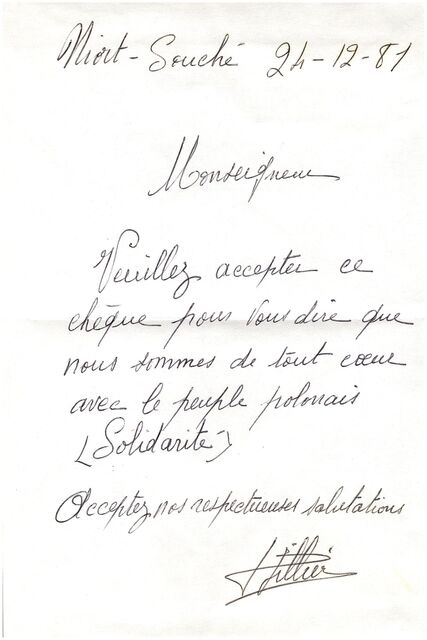 Niort - Souché 24-12-81
Monseigneur
Veuillez accepter ce
chèque pour vous dire que
nous sommes de tout cœur
avec le peuple polonais
(Solidarité)
Acceptez nos respectueuses salutations